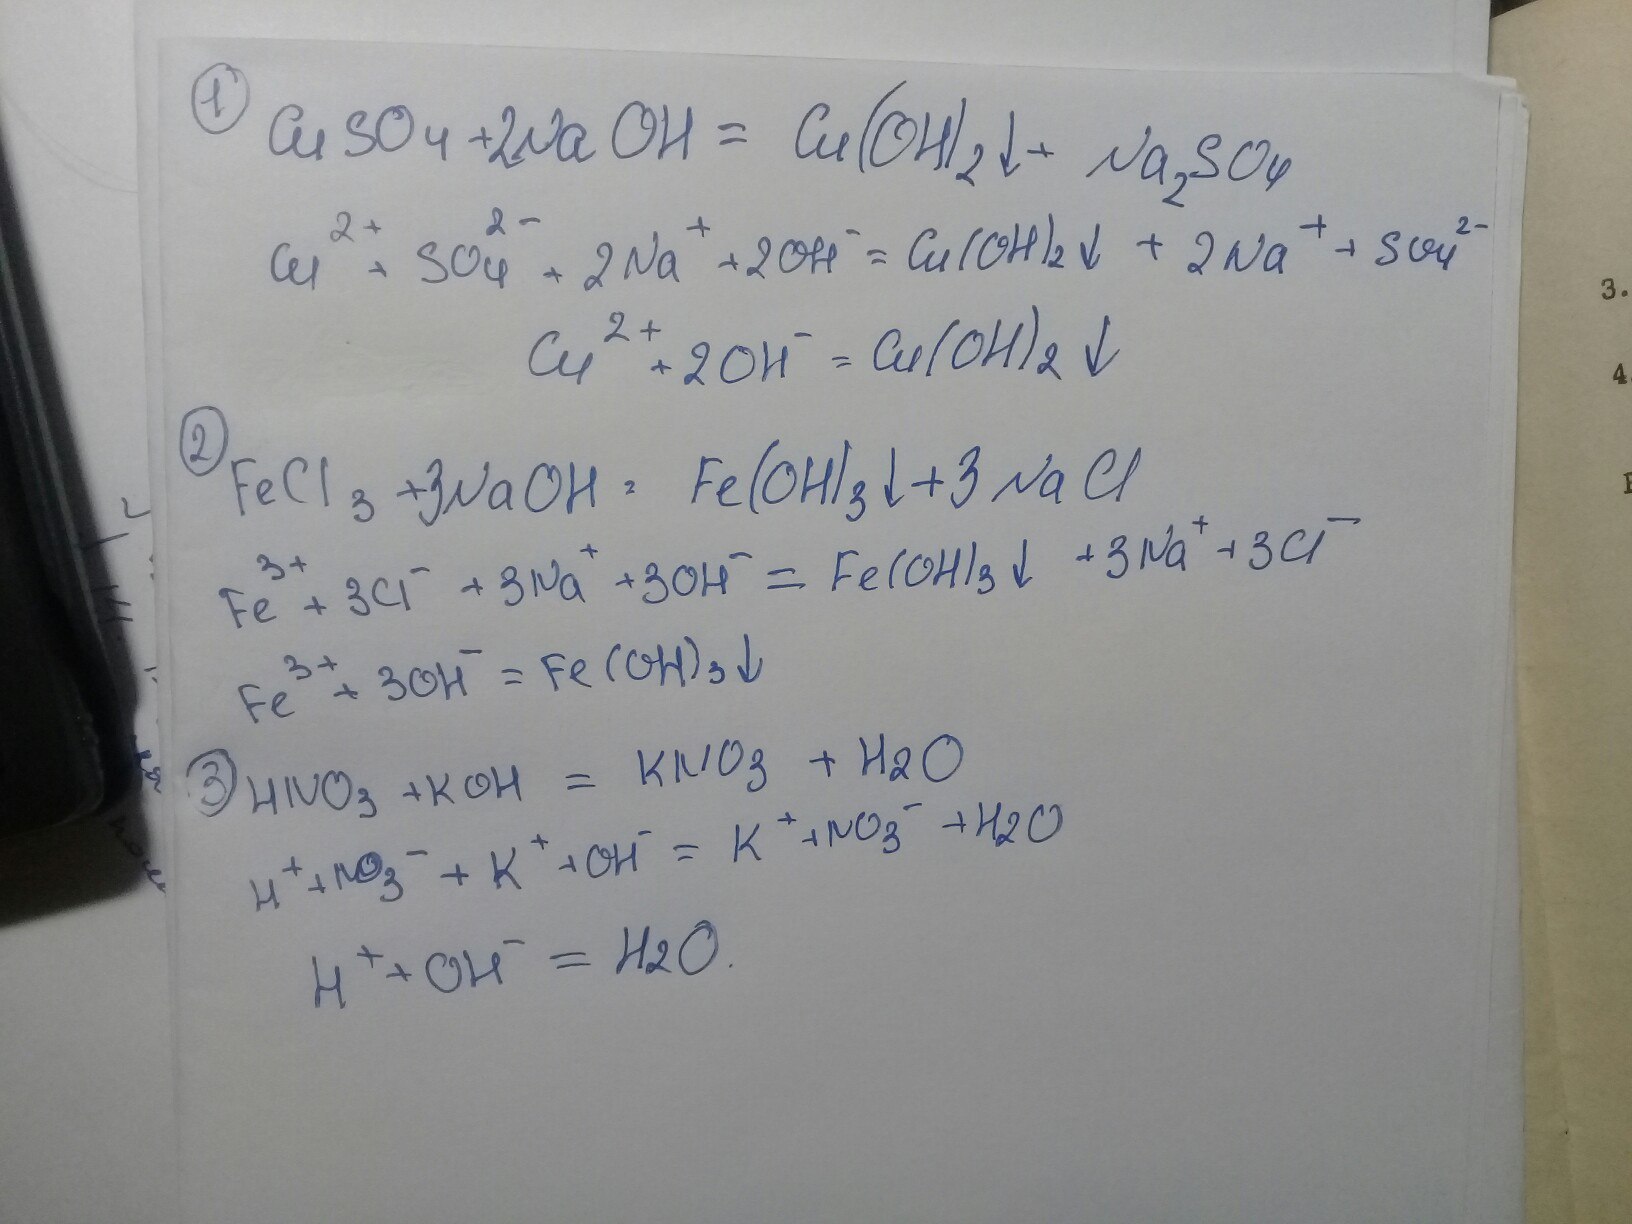 ① CuSO₄ + 2NaOH = Cu(OH)₂↓ + Na₂SO₄
Cu²⁺ + SO₄²⁻ + 2Na⁺ + 2OH⁻ = Cu(OH)₂↓ + 2Na⁺ + SO₄²⁻
Cu²⁺ + 2OH⁻ = Cu(OH)₂↓
② FeCl₃ + 3NaOH = Fe(OH)₃↓ + 3NaCl
Fe³⁺ + 3Cl⁻ + 3Na⁺ + 3OH⁻ = Fe(OH)₃↓ + 3Na⁺ + 3Cl⁻
Fe³⁺ + 3OH⁻ = Fe(OH)₃↓
③ HNO₃ + KOH = KNO₃ + H₂O
H⁺ + NO₃⁻ + K⁺ + OH⁻ = K⁺ + NO₃⁻ + H₂O
H⁺ + OH⁻ = H₂O.
3.
4.